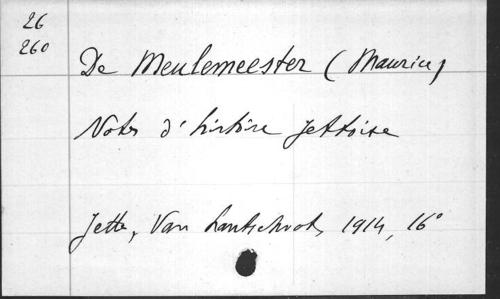 26
260
De Meulemeester (Maurice)
Notes d'histoire Jettoise
Jette, Van Lantschoot, 1914, 16°